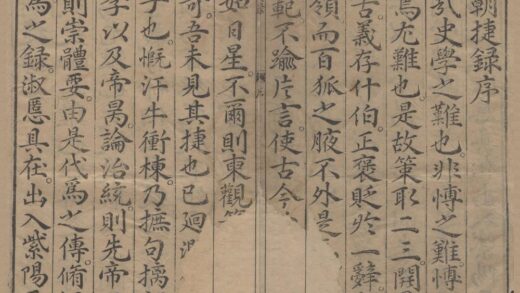 朝捷録序
史學之難也。非慱之難慱
爲尤難也。是故策取二三。開
古義存什伯。正褒貶於一辭
領而百狐之腋不外是
範不踰片言。使古今
如日星。不爾則東觀
吾未見其捷也。已廻
子也。慨汗牛衝棟。乃摭句摛
李以及帝昺。論治統。則先帝
則崇體要。由是代爲之傳。脩
爲之録。淑慝具在。出入紫陽